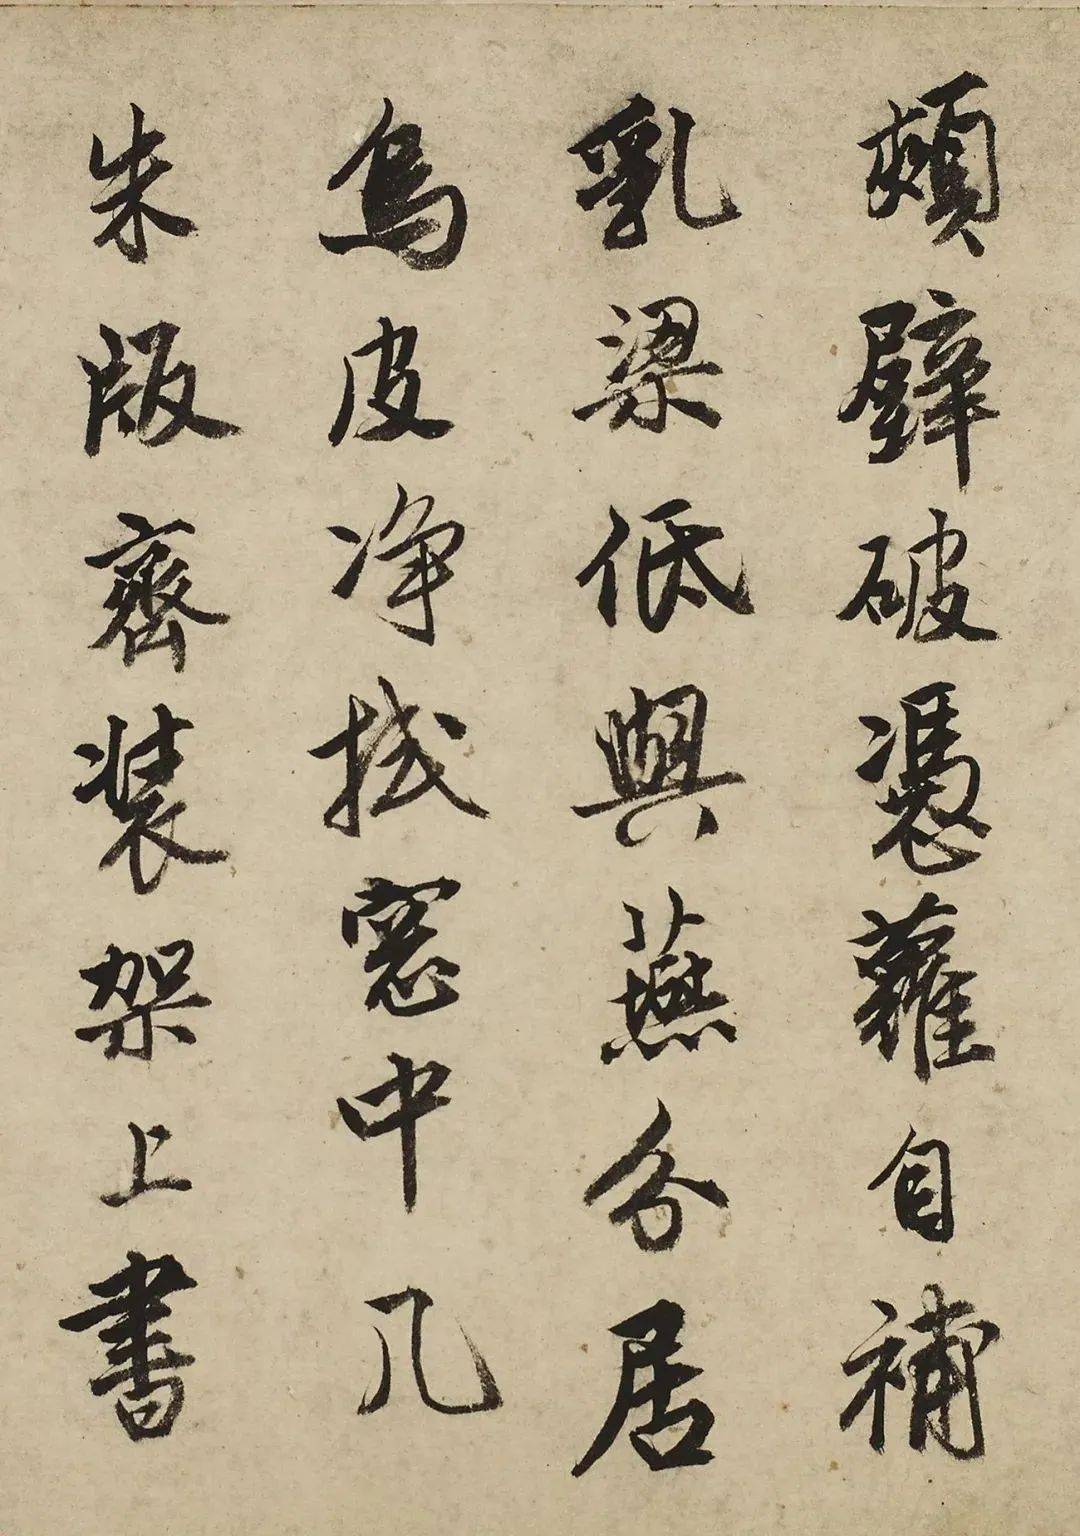 頹壁破憑蘿自補
乳梁低與燕分居
烏皮净拭窓中几
朱版齊裝架上書